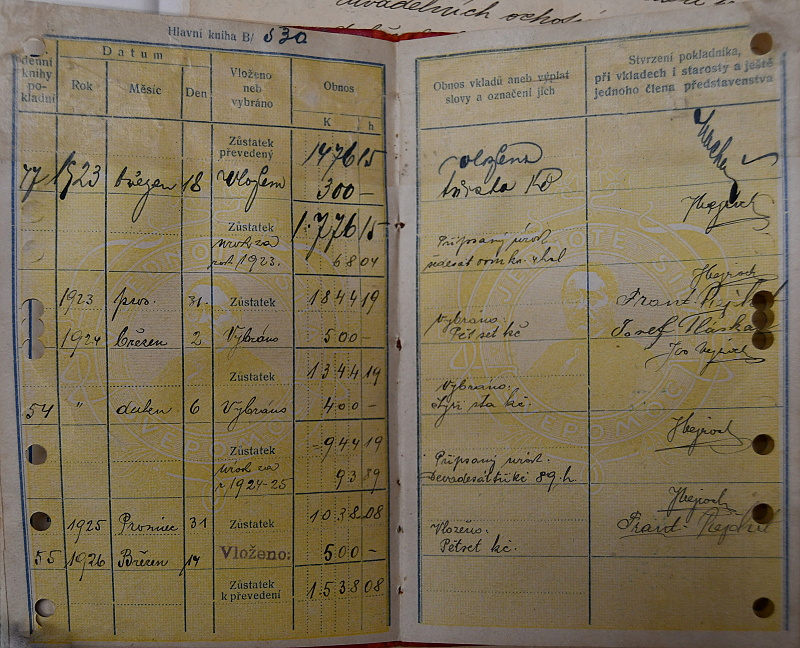 Hlavní kniha B/ 530
denní knihy po- kladní
Datum
Rok
Měsíc
Den
Vloženo neb vybráno
Obnos
K h
Obnos vkladů aneb výplat slovy a označení jich
Stvrzení pokladníka, při vkladech i starosty a ještě jednoho člena představenstva
Zůstatek převedený 1476 15
77 1923 březen 18 Vloženo 300 –
vložena
třista Kč
Zůstatek 1776 15
úrok za rok 1923. 68 04
Připsaný úrok
šedesát osm kč. 4 hal
1923 pros. 31. Zůstatek 1844 19
1924 březen 2 Vybráno 500 –
Vybráno:
Pět set kč
Josef
Zůstatek 1344 19
54 " duben 6 Vybráno 400 –
Vybráno:
čtyři sta kč.
Zůstatek 944 19
úrok za r 1924-25 93 89
Připsaný úrok.
Devadesát tři kč 89 h.
1925 Prosinec 31 Zůstatek 1038 08
55 1926 Březen 14 Vloženo: 500 –
Vloženo:
Pětset kč.
Zůstatek k převedení 1538 08